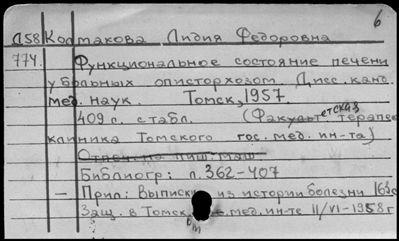 6
Д58 Колмакова Лидия Федоровна
774. Функциональное состояние печени
у больных описторхозом. Дисс. канд.
мед. наук. Томск, 1957.
409 л. с табл. (Факультетская терапев.
клиника Томского гос. мед. ин-та)
Отпеч. на пиш. маш.
Библиогр: л. 362-407
— Прил: Выписки из истории болезни 163с
Защ. в Томск. мед. ин-те 11/VI-1958г